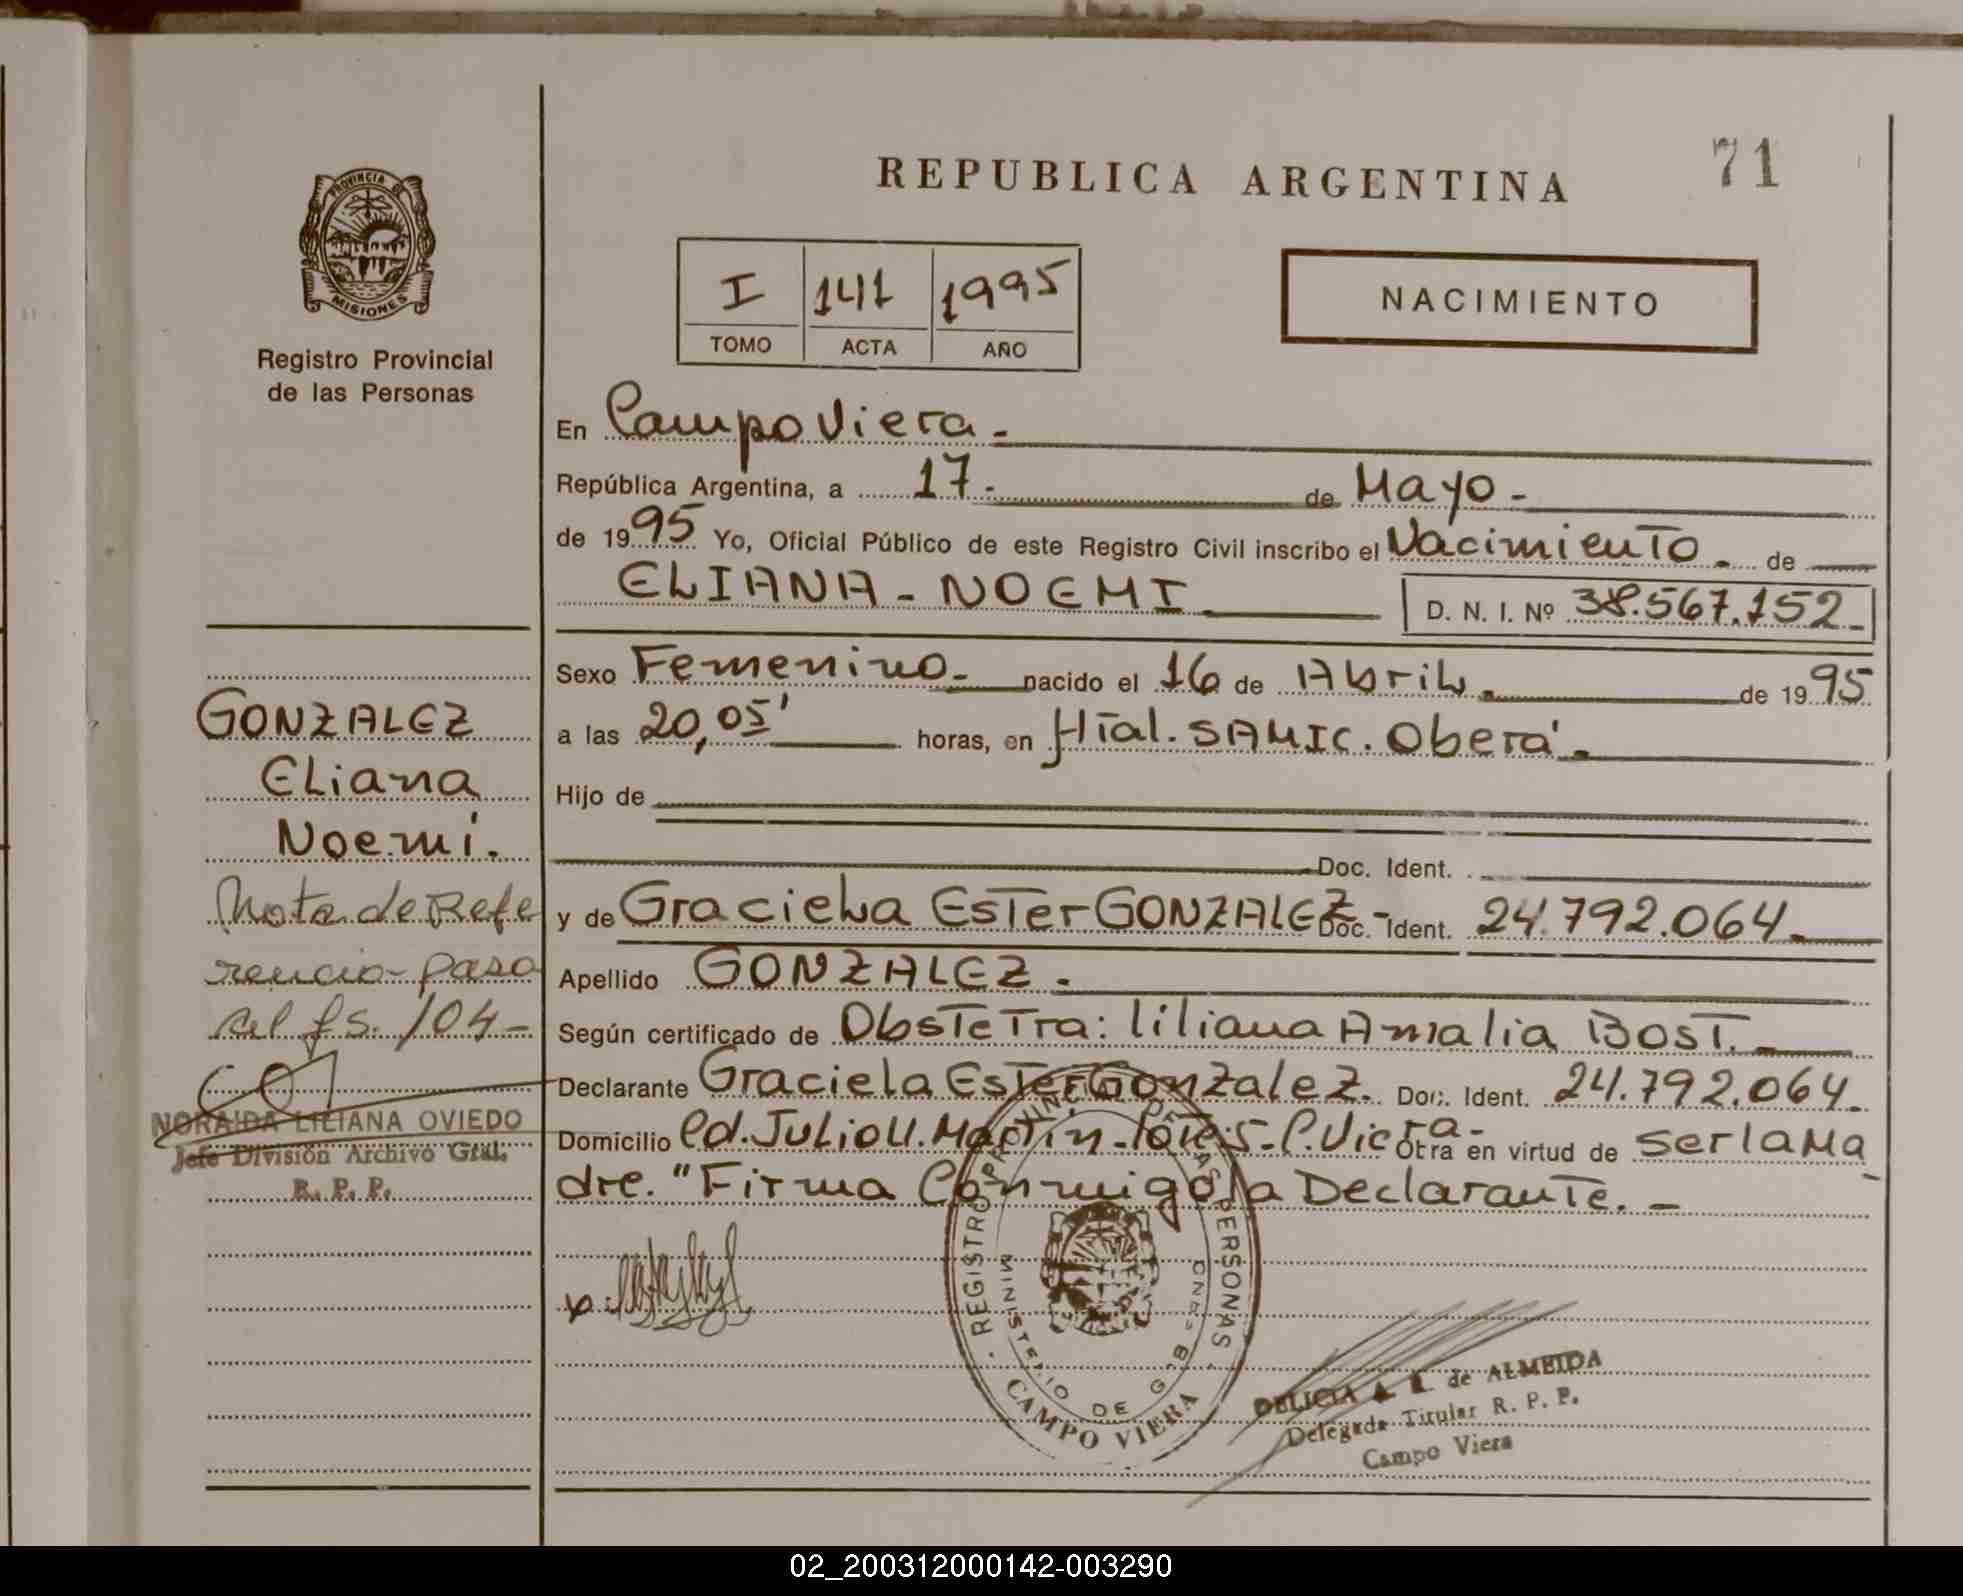 REPUBLICA ARGENTINA
71
PROVINCIA DE
MISIONES
Registro Provincial
de las Personas
I 141 1995
TOMO ACTA AÑO
NACIMIENTO
En Campo Viera.-
República Argentina, a 17.- de Mayo.-
de 1995 Yo, Oficial Público de este Registro Civil inscribo el Nacimiento.- de
ELIANA - NOEMI D. N. I. Nº 38.567.152.-
Sexo Femenino.- nacido el 16 de Abril.- de 1995
a las 20,05' horas, en Htal. SAMIC. Oberá.-
Hijo de
Doc. Ident.
y de Graciela Ester GONZALEZ.- Doc. Ident. 24.792.064.-
Apellido GONZALEZ.-
Según certificado de Obstetra: liliana Amalia BOST.-
Declarante Graciela Ester Gonzalez. Doc. Ident. 24.792.064.-
Domicilio Cd. Julio U. Martin - - C. Viera.- Otra en virtud de ser la Ma
dre. "Firma Conmigo la Declarante.-
GONZALEZ
Eliana
Noemí.
Nota de Refe
rencia- pasa
al fs. 104-
NORAIDA LILIANA OVIEDO
Jefe División Archivo Gral.
R. P. P.
REGISTRO PROVINCIAL DE LAS PERSONAS
MINISTERIO DE GOB
CAMPO VIERA
DELICIA de ALMEIDA
Delegada Titular R. P. P.
Campo Viera
02_200312000142-003290